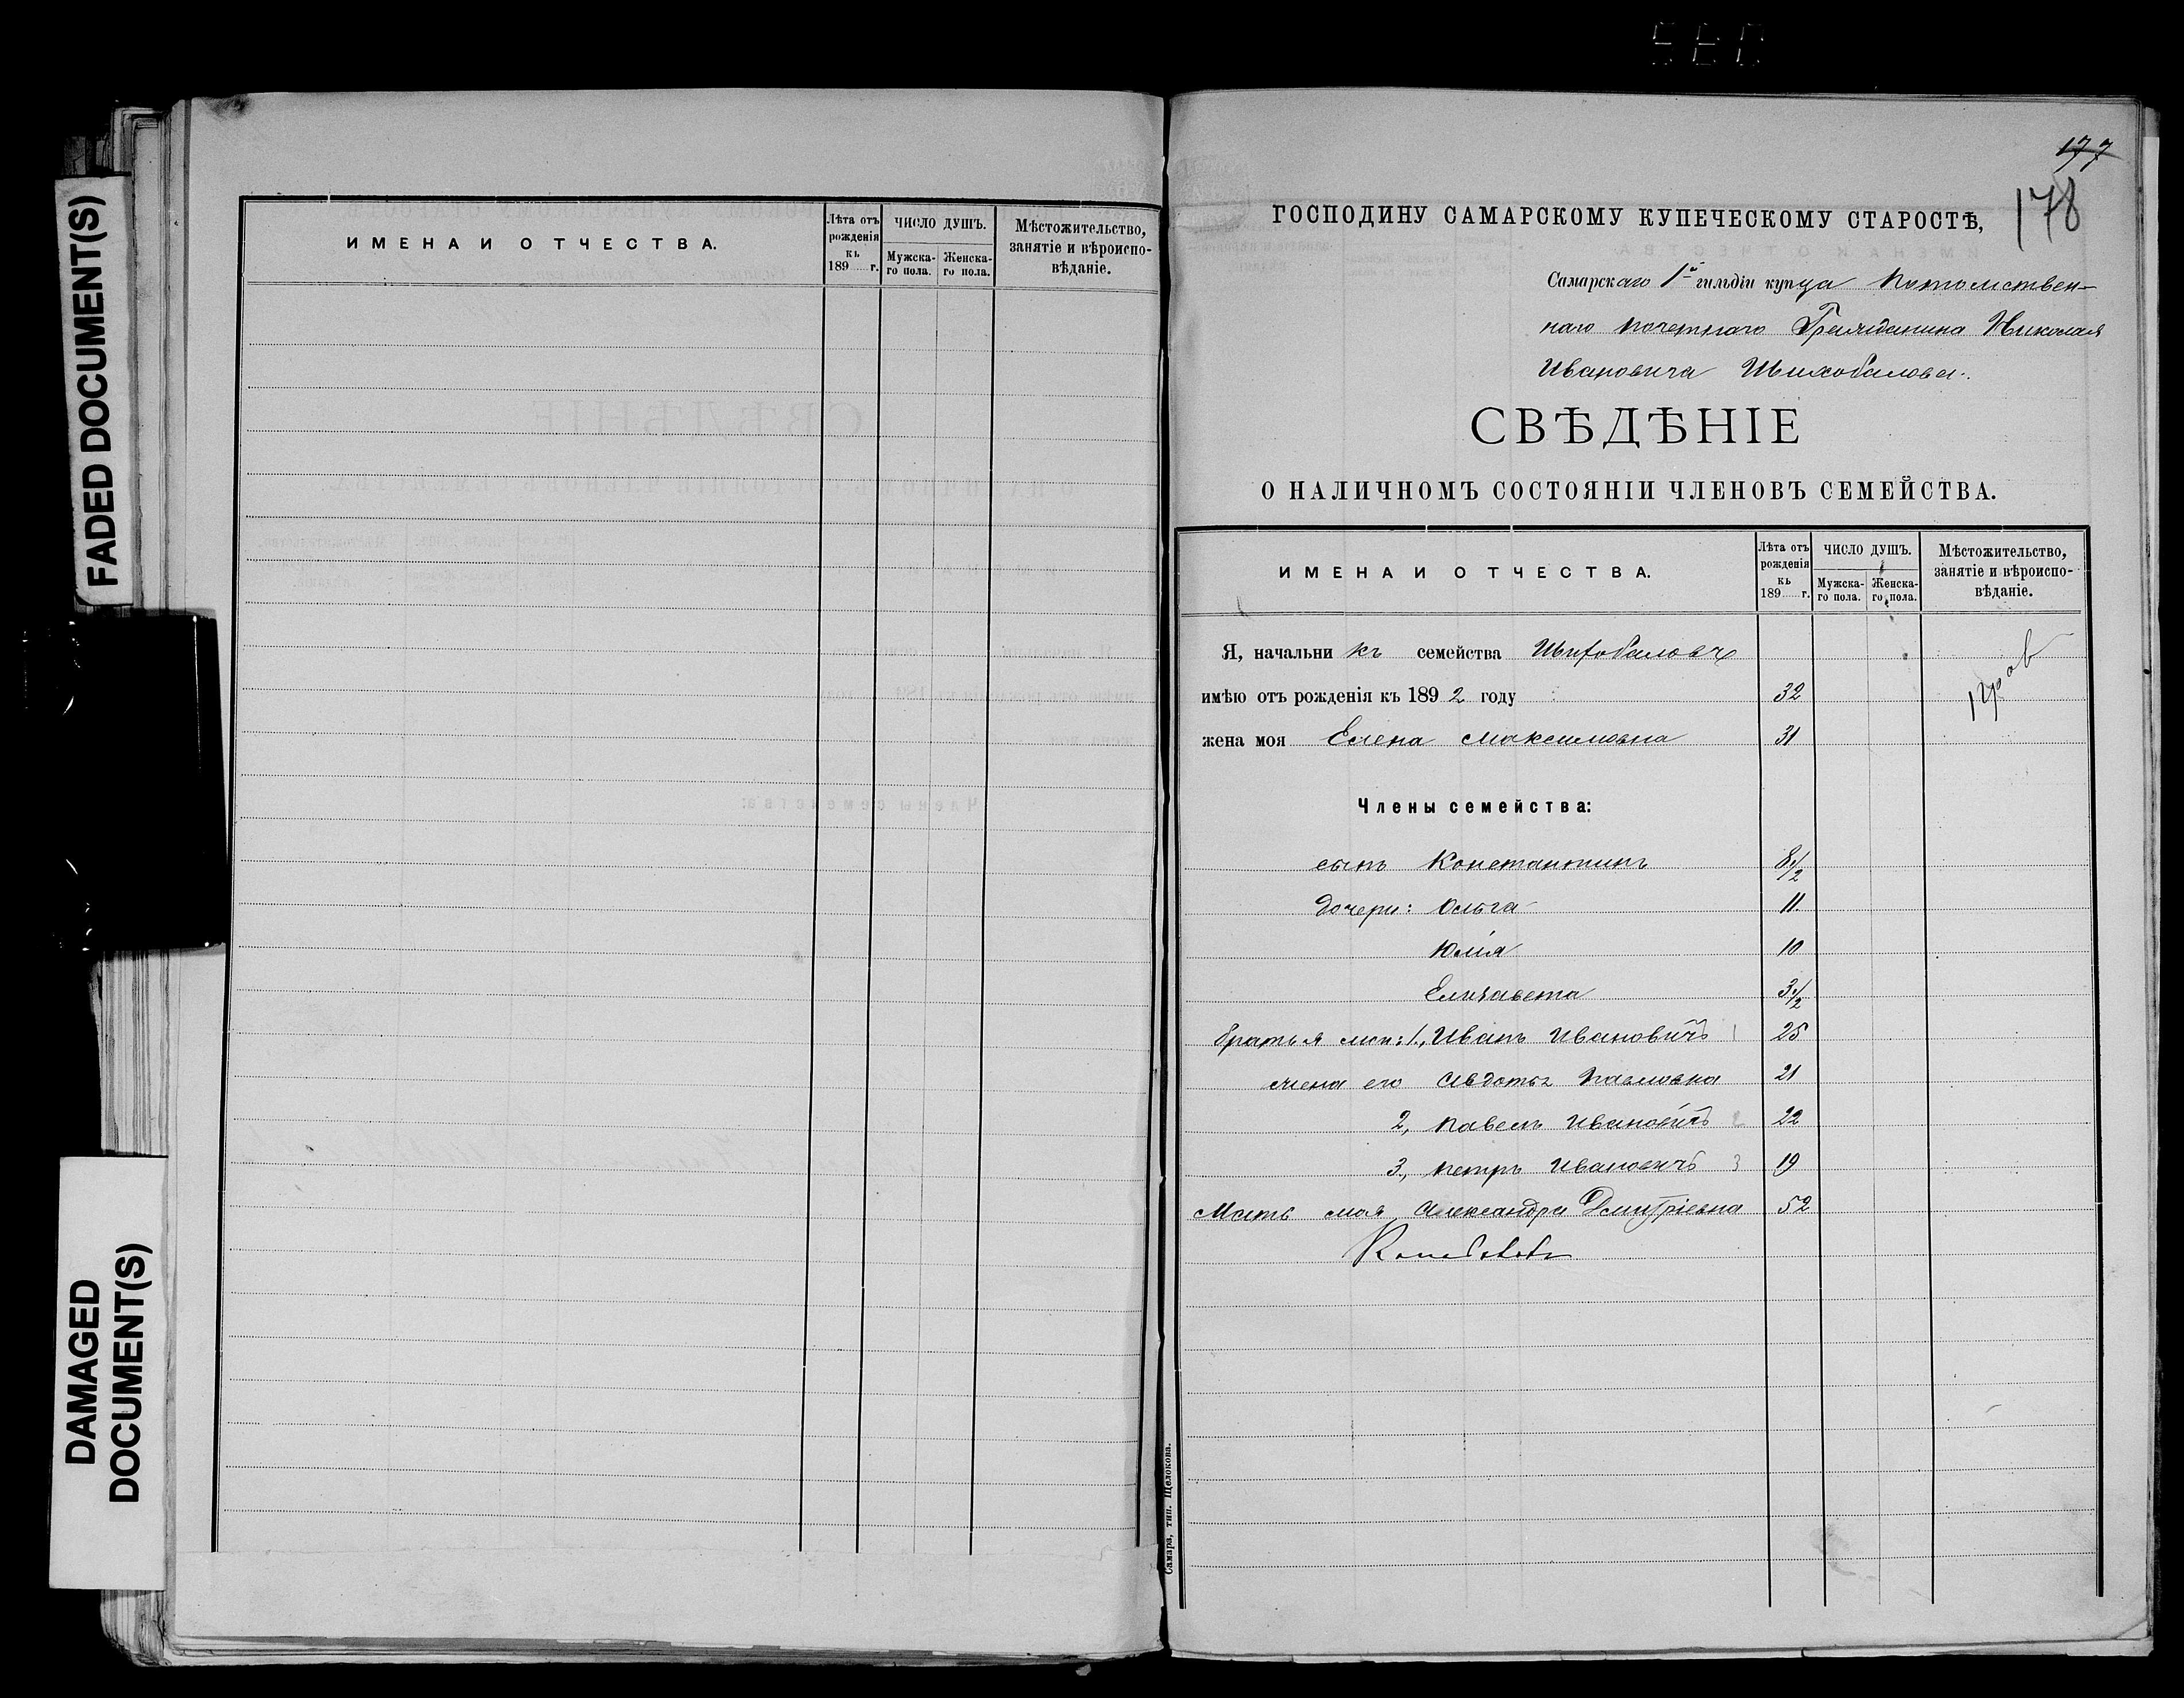 FADED DOCUMENT(S)
DAMAGED
DOCUMENT(S)
ИМЕНА И ОТЧЕСТВА.
Лѣта отъ
рожденія
къ
189......г.
ЧИСЛО ДУШЪ.
Мужска-
го пола.
Женска-
го пола.
Мѣстожительство,
занятіе и вѣроиспо-
вѣданіе.
177
178
ГОСПОДИНУ САМАРСКОМУ КУПЕЧЕСКОМУ СТАРОСТѢ,
Самарскаго 1й гильдіи купца Потомствен-
наго почетнаго Гражданина Николая
Ивановича Шихобалова.
СВѢДѢНІЕ
О НАЛИЧНОМЪ СОСТОЯНІИ ЧЛЕНОВЪ СЕМЕЙСТВА.
ИМЕНА И ОТЧЕСТВА.
Лѣта отъ
рожденія
къ
189......г.
ЧИСЛО ДУШЪ.
Мужска-
го пола.
Женска-
го пола.
Мѣстожительство,
занятіе и вѣроиспо-
вѣданіе.
Я, начальникъ семейства Шихобаловъ
имѣю отъ рожденія къ 1892 году 32
жена моя Елена Максимовна 31
Члены семейства:
сынъ Константинъ 8 1/2
дочери: Ольга 11.
Юлія 10
Елизавета 3 1/2
братья мои: 1, Иванъ Ивановичъ 1 25
жена его Авдотья Павловна 21
2, Павелъ Ивановичъ 2 22
3, Петръ Ивановичъ 3 19
Мать моя Александра Дмитріевна 52
Самара, тип. Щелокова.